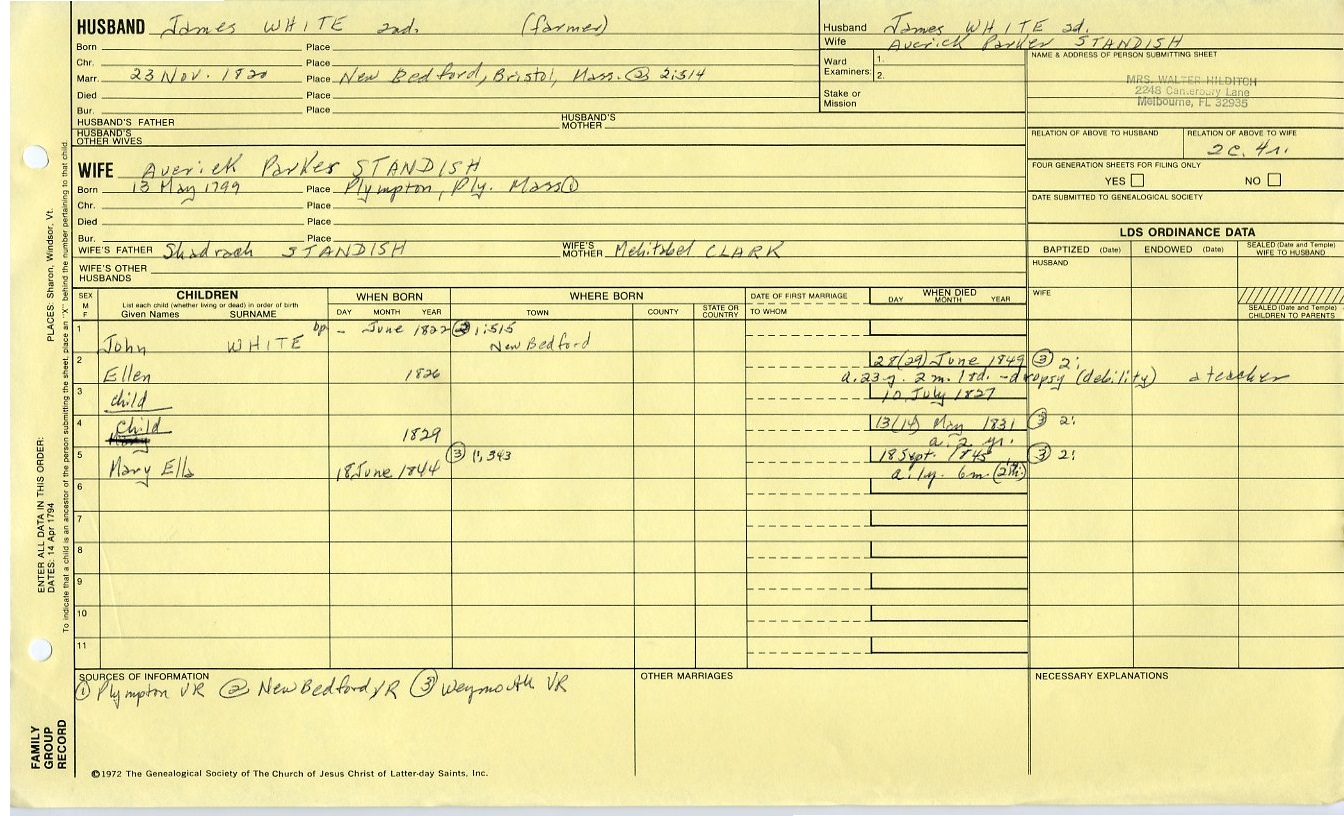 HUSBAND James WHITE 2nd. (farmer)
Born Place
Chr. Place
Marr. 23 Nov. 1820 Place New Bedford, Bristol, Mass. ② 2:514
Died Place
Bur. Place
HUSBAND'S FATHER HUSBAND'S MOTHER
HUSBAND'S OTHER WIVES
WIFE Averick Parker STANDISH
Born 13 May 1799 Place Plympton, Ply. Mass ①
Chr. Place
Died Place
Bur. Place
WIFE'S FATHER Shadrach STANDISH WIFE'S MOTHER Mehitabel CLARK
WIFE'S OTHER HUSBANDS
Husband James WHITE 2d.
Wife Averick Parker STANDISH
Ward Examiners: 1.
2.
Stake or Mission
NAME & ADDRESS OF PERSON SUBMITTING SHEET
MRS. WALTER HILDITCH
2248 Canterbury Lane
Melbourne, FL 32935
RELATION OF ABOVE TO HUSBAND RELATION OF ABOVE TO WIFE
2c. 4r.
FOUR GENERATION SHEETS FOR FILING ONLY
YES NO
DATE SUBMITTED TO GENEALOGICAL SOCIETY
LDS ORDINANCE DATA
BAPTIZED (Date) ENDOWED (Date) SEALED (Date and Temple) WIFE TO HUSBAND
HUSBAND
WIFE
SEALED (Date and Temple) CHILDREN TO PARENTS
SEX M F
CHILDREN
List each child (whether living or dead) in order of birth
Given Names SURNAME
WHEN BORN
DAY MONTH YEAR
WHERE BORN
TOWN COUNTY STATE OR COUNTRY
DATE OF FIRST MARRIAGE
TO WHOM
WHEN DIED
DAY MONTH YEAR
1 John WHITE bp. - June 1822 ② 1:515
New Bedford
2 Ellen 1826 28(29) June 1849 ③ 2:
a. 23 y. 2 m. 1 d. - dropsy (debility) a teacher
3 child 10 July 1827
4 Child 1829 13(14) May 1831 ③ 2:
a. 2 yr.
5 Mary Ella 18 June 1844 ③ 1:343 18 Sept. 1845 ③ 2:
a. 1 y. 6 m.
6
7
8
9
10
11
SOURCES OF INFORMATION
① Plympton VR ② New Bedford VR ③ Weymouth VR
OTHER MARRIAGES
NECESSARY EXPLANATIONS
©1972 The Genealogical Society of The Church of Jesus Christ of Latter-day Saints, Inc.
FAMILY GROUP RECORD
ENTER ALL DATA IN THIS ORDER:
DATES: 14 Apr 1794
PLACES: Sharon, Windsor, Vt.
To indicate that a child is an ancestor of the person submitting the sheet, place an "X" behind the number pertaining to that child.